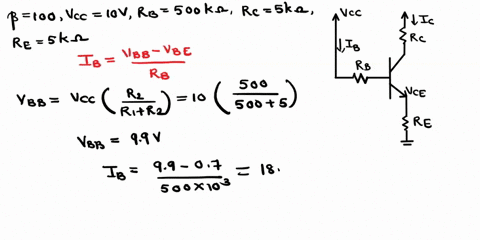 β=100, VCC = 10V, RB = 500 kΩ, RC = 5kΩ,
RE = 5kΩ
IB = VBB - VBE / RB
VBB = VCC ( R2 / R1+R2 ) = 10 ( 500 / 500 + 5 )
VBB = 9.9V
IB = 9.9 - 0.7 / 500 × 10^3 = 18.
VCC
↓ IC
RC
↓ IB
RB
VCE
RE